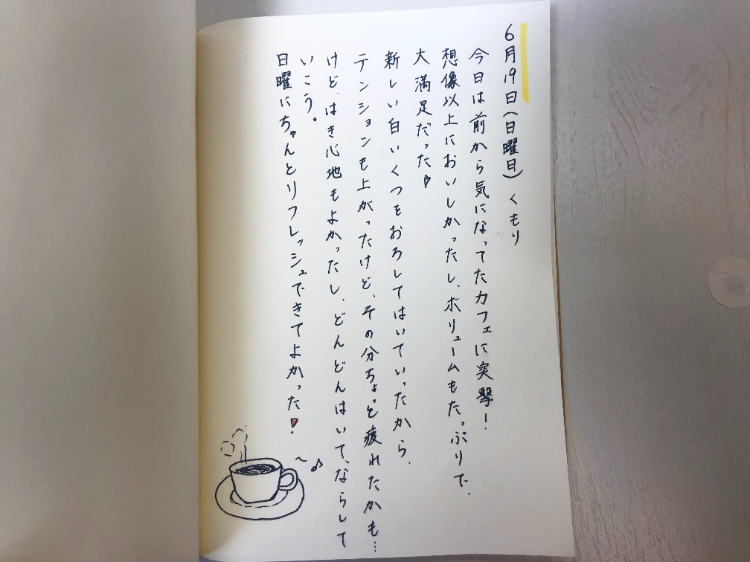 6月19日(日曜日) くもり
今日は前から気になってたカフェに突撃!
想像以上においしかったし、ボリュームもたっぷりで、
大満足だった
新しい白いくつをおろしてはいていったから、
テンションも上がったけど、その分ちょっと疲れたかも…
けど、はき心地もよかったし、どんどんはいて、ならして
いこう。
日曜にちゃんとリフレッシュできてよかった!